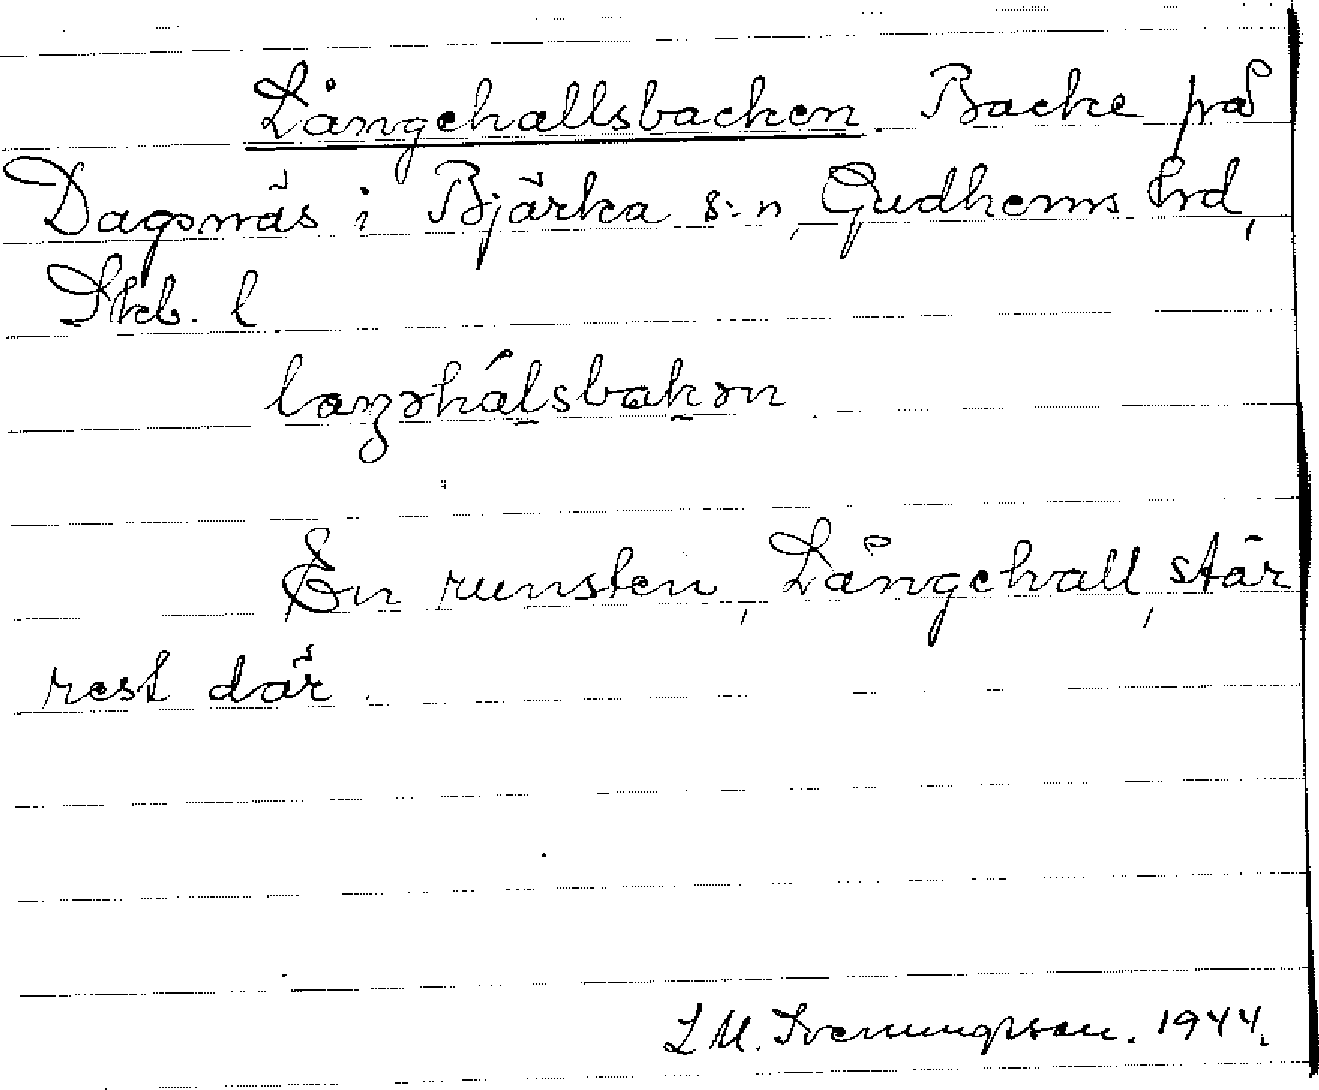 Långehallsbacken Backe på
Dagsnäs i Bjärka s:n, Gudhems hrd,
Skb. l
En runsten, Långehall, står
rest där.
L M. Svenungsson. 1944.